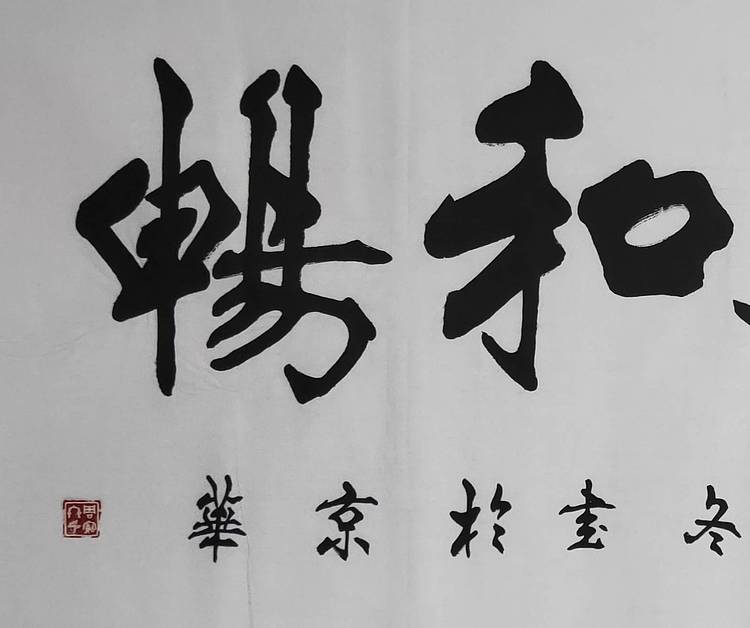 和暢
冬書於京華